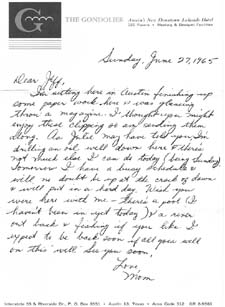 THE GONDOLIER
Austin's New Downtown Lakeside Hotel
Sunday, June 27, 1965
Dear Jeff,
I'm sitting here in Austin finishing up
some paper work here & was glancing
thru a magazine. I thought you might
enjoy these clippings so am sending them
along. As Julie may have told you, I'm
drilling an oil well down here & there's
not much else I can do today (being Sunday)
Tomorrow I have a busy schedule &
will no doubt be up at the crack of dawn
& will put in a hard day. Wish you
were here with me - there's a pool (I
haven't been in yet today) & a river
out back & fishing if you like. I
expect to be back soon if all goes well
on this well. See you soon,
Love,
Mom
Interstate 35 & Riverside Dr., P. O. Box • Austin, Texas • Area Code 512